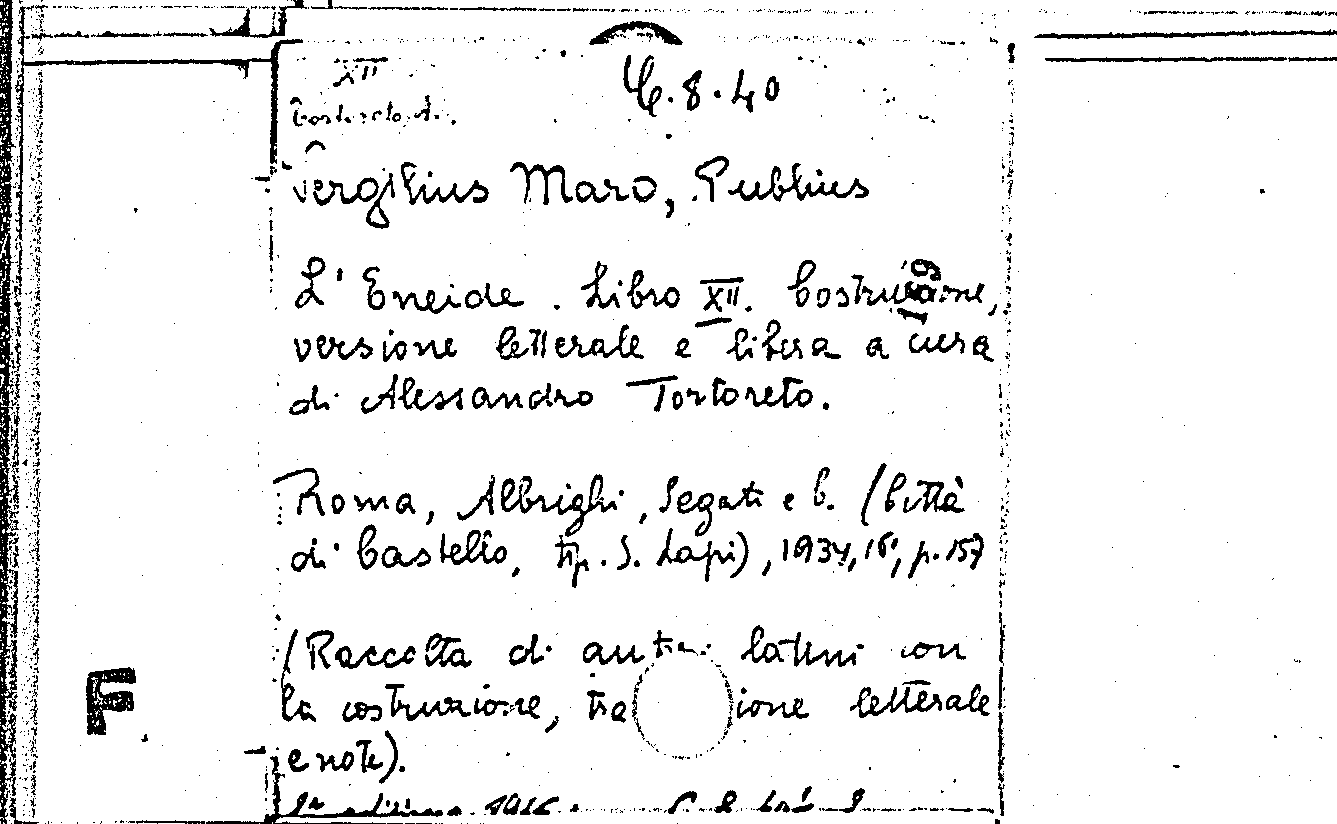 XII
C.8.40
Tortoreto A.
Vergilius Maro, Publius
L'Eneide. Libro XII. Costruzione,
versione letterale e libera a cura
di Alessandro Tortoreto.
Roma, Albrighi, Segati e C. (Città
di Castello, tip. S. Lapi), 1934, 16°, p. 157
(Raccolta di autori latini con
la costruzione, tra ione letterale
e note).
F